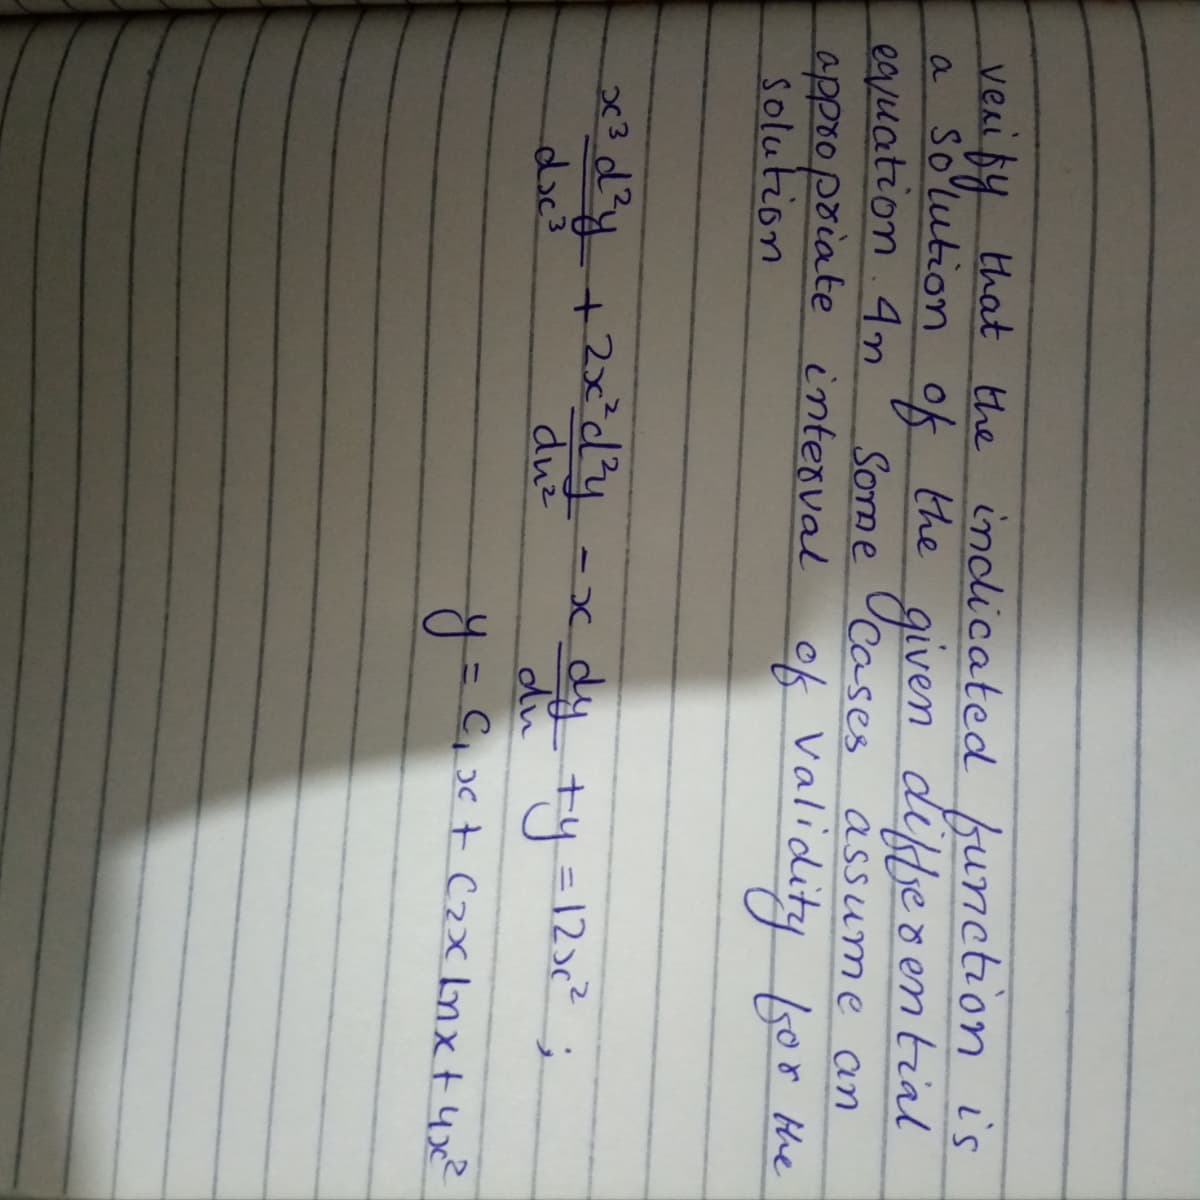 verify that the indicated function is
a solution of the given differential
equation. In some cases assume an
appropriate interval of validity for the
solution
x³ d²y/dx³ + 2x² d²y/dn² - x dy/dn + y = 12x² ;
y = C₁x + C₂x lnx + 4x²